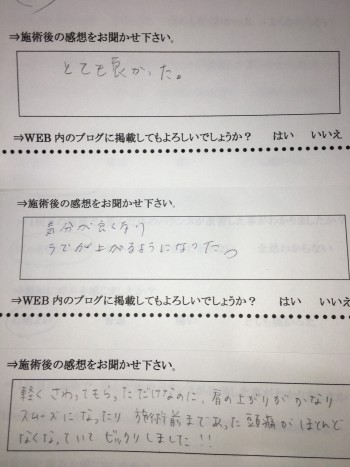 ⇒施術後の感想をお聞かせ下さい。
とても良かった。
⇒WEB内のブログに掲載してもよろしいでしょうか？　はい　いいえ
⇒施術後の感想をお聞かせ下さい。
気分が良くなり
うでが上がるようになったっ
⇒WEB内のブログに掲載してもよろしいでしょうか？　はい　いいえ
⇒施術後の感想をお聞かせ下さい。
軽くさわってもらっただけなのに、肩の上がりがかなり
スムーズになったり 施術前まであった頭痛がほとんど
なくなっていてビックリしました!!